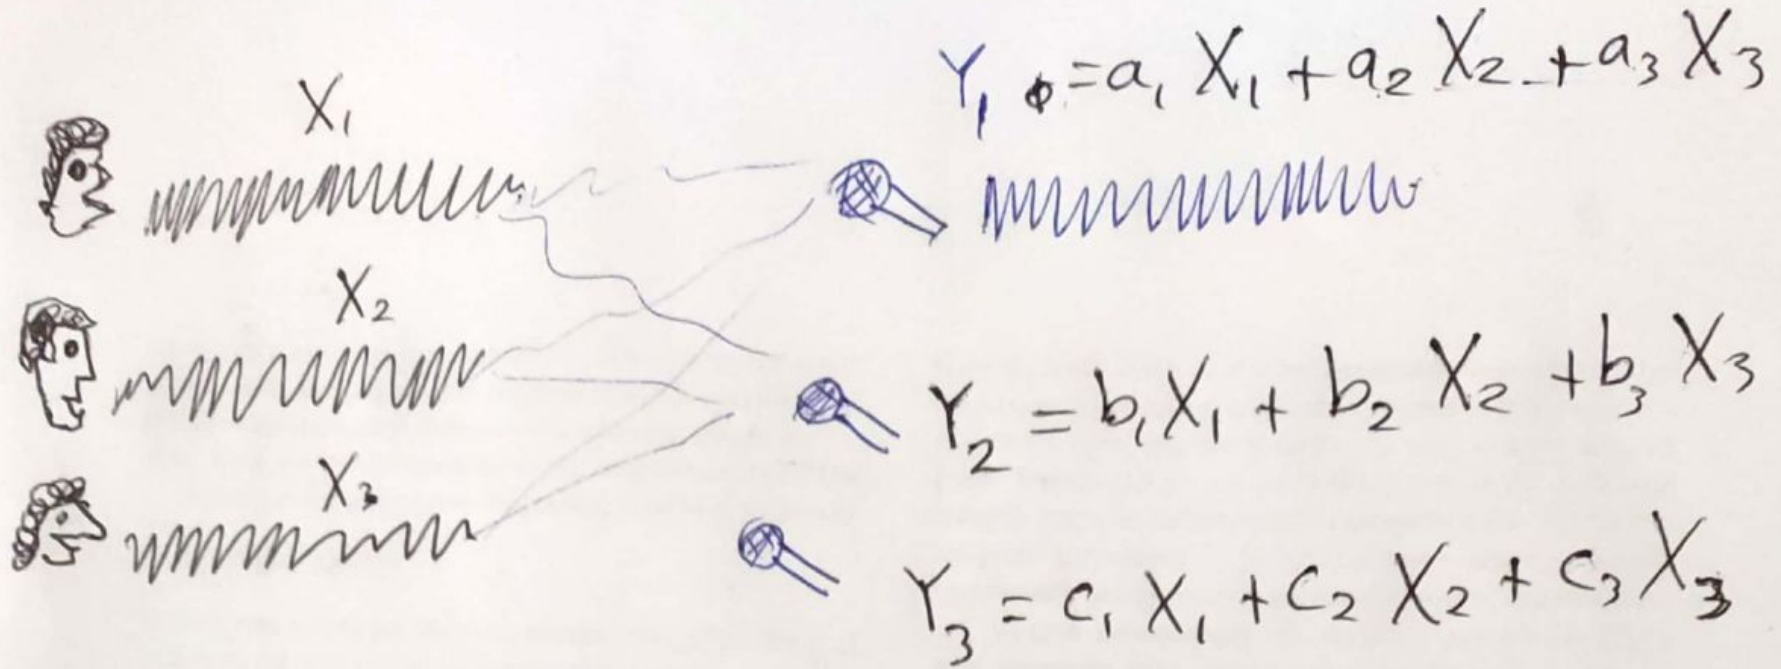 X₁
Y₁ = a₁ X₁ + a₂ X₂ + a₃ X₃
X₂
Y₂ = b₁X₁ + b₂ X₂ + b₃ X₃
X₃
Y₃ = c₁ X₁ + c₂ X₂ + c₃ X₃